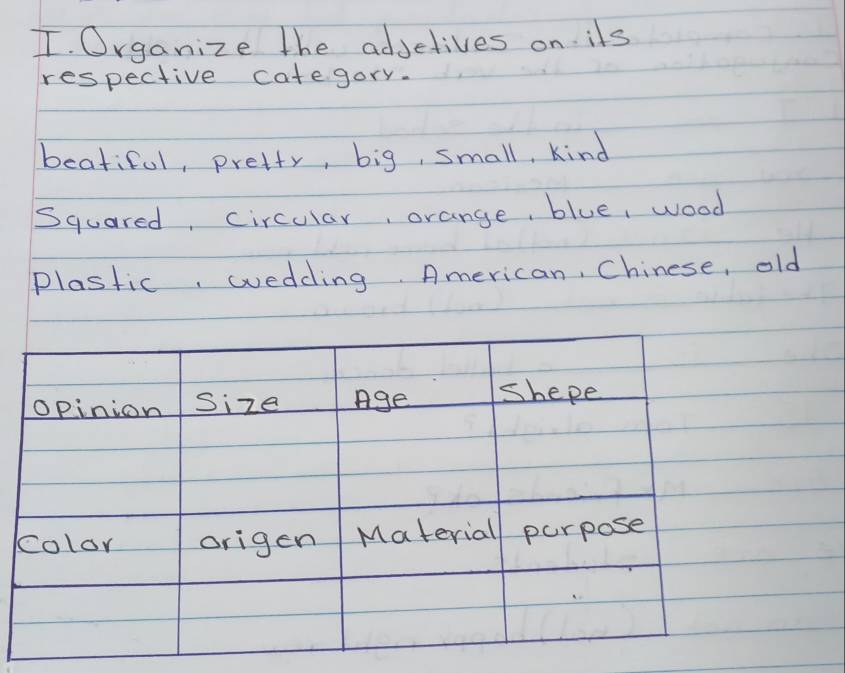 I. Organize the adjetives on its
respective category.
beatiful, pretty, big, small, kind
Squared, circular, orange, blue, wood
Plastic, wedding, American, Chinese, old
opinion Size Age Shepe
color origen Material purpose